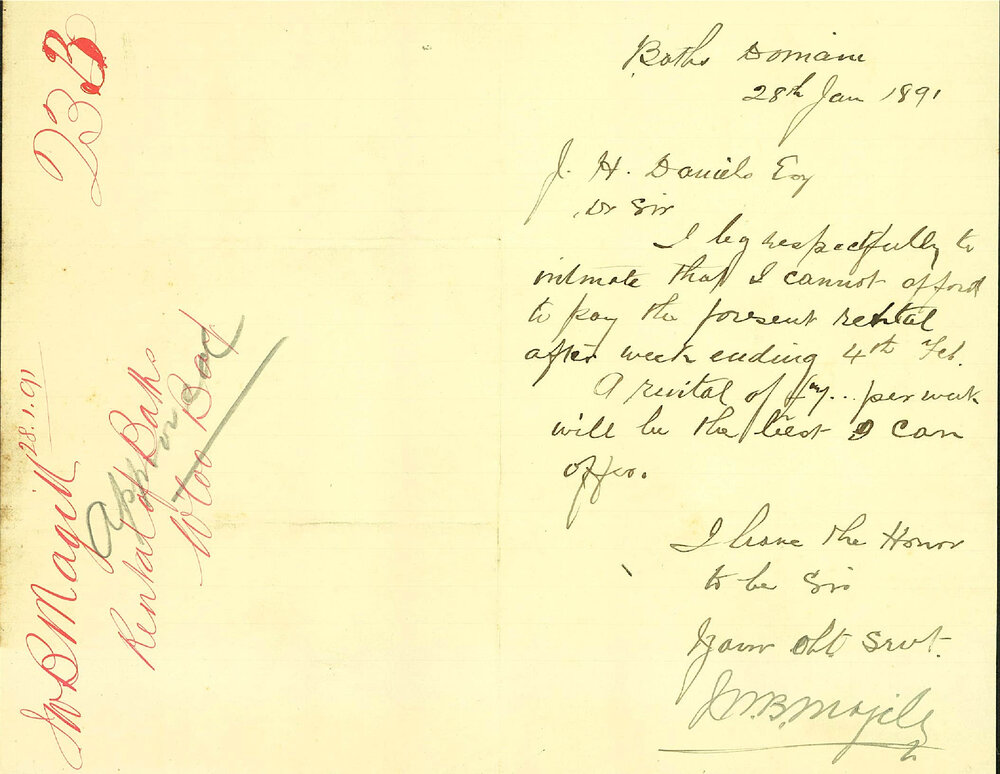 Baths Domain
28th Jan 1891
J. H. Daniels Esq
Dr Sir
I beg respectfully to
intimate that I cannot afford
to pay the present rental
after week ending 4th Feb.
A rental of per week
will be the best I can
offer.
I have the Honor
to be Sir
Your Obt Servt.
J.W.B. Magill
23B
JWB Magill 28.1.91
Rental of Baths
W'loo Bay